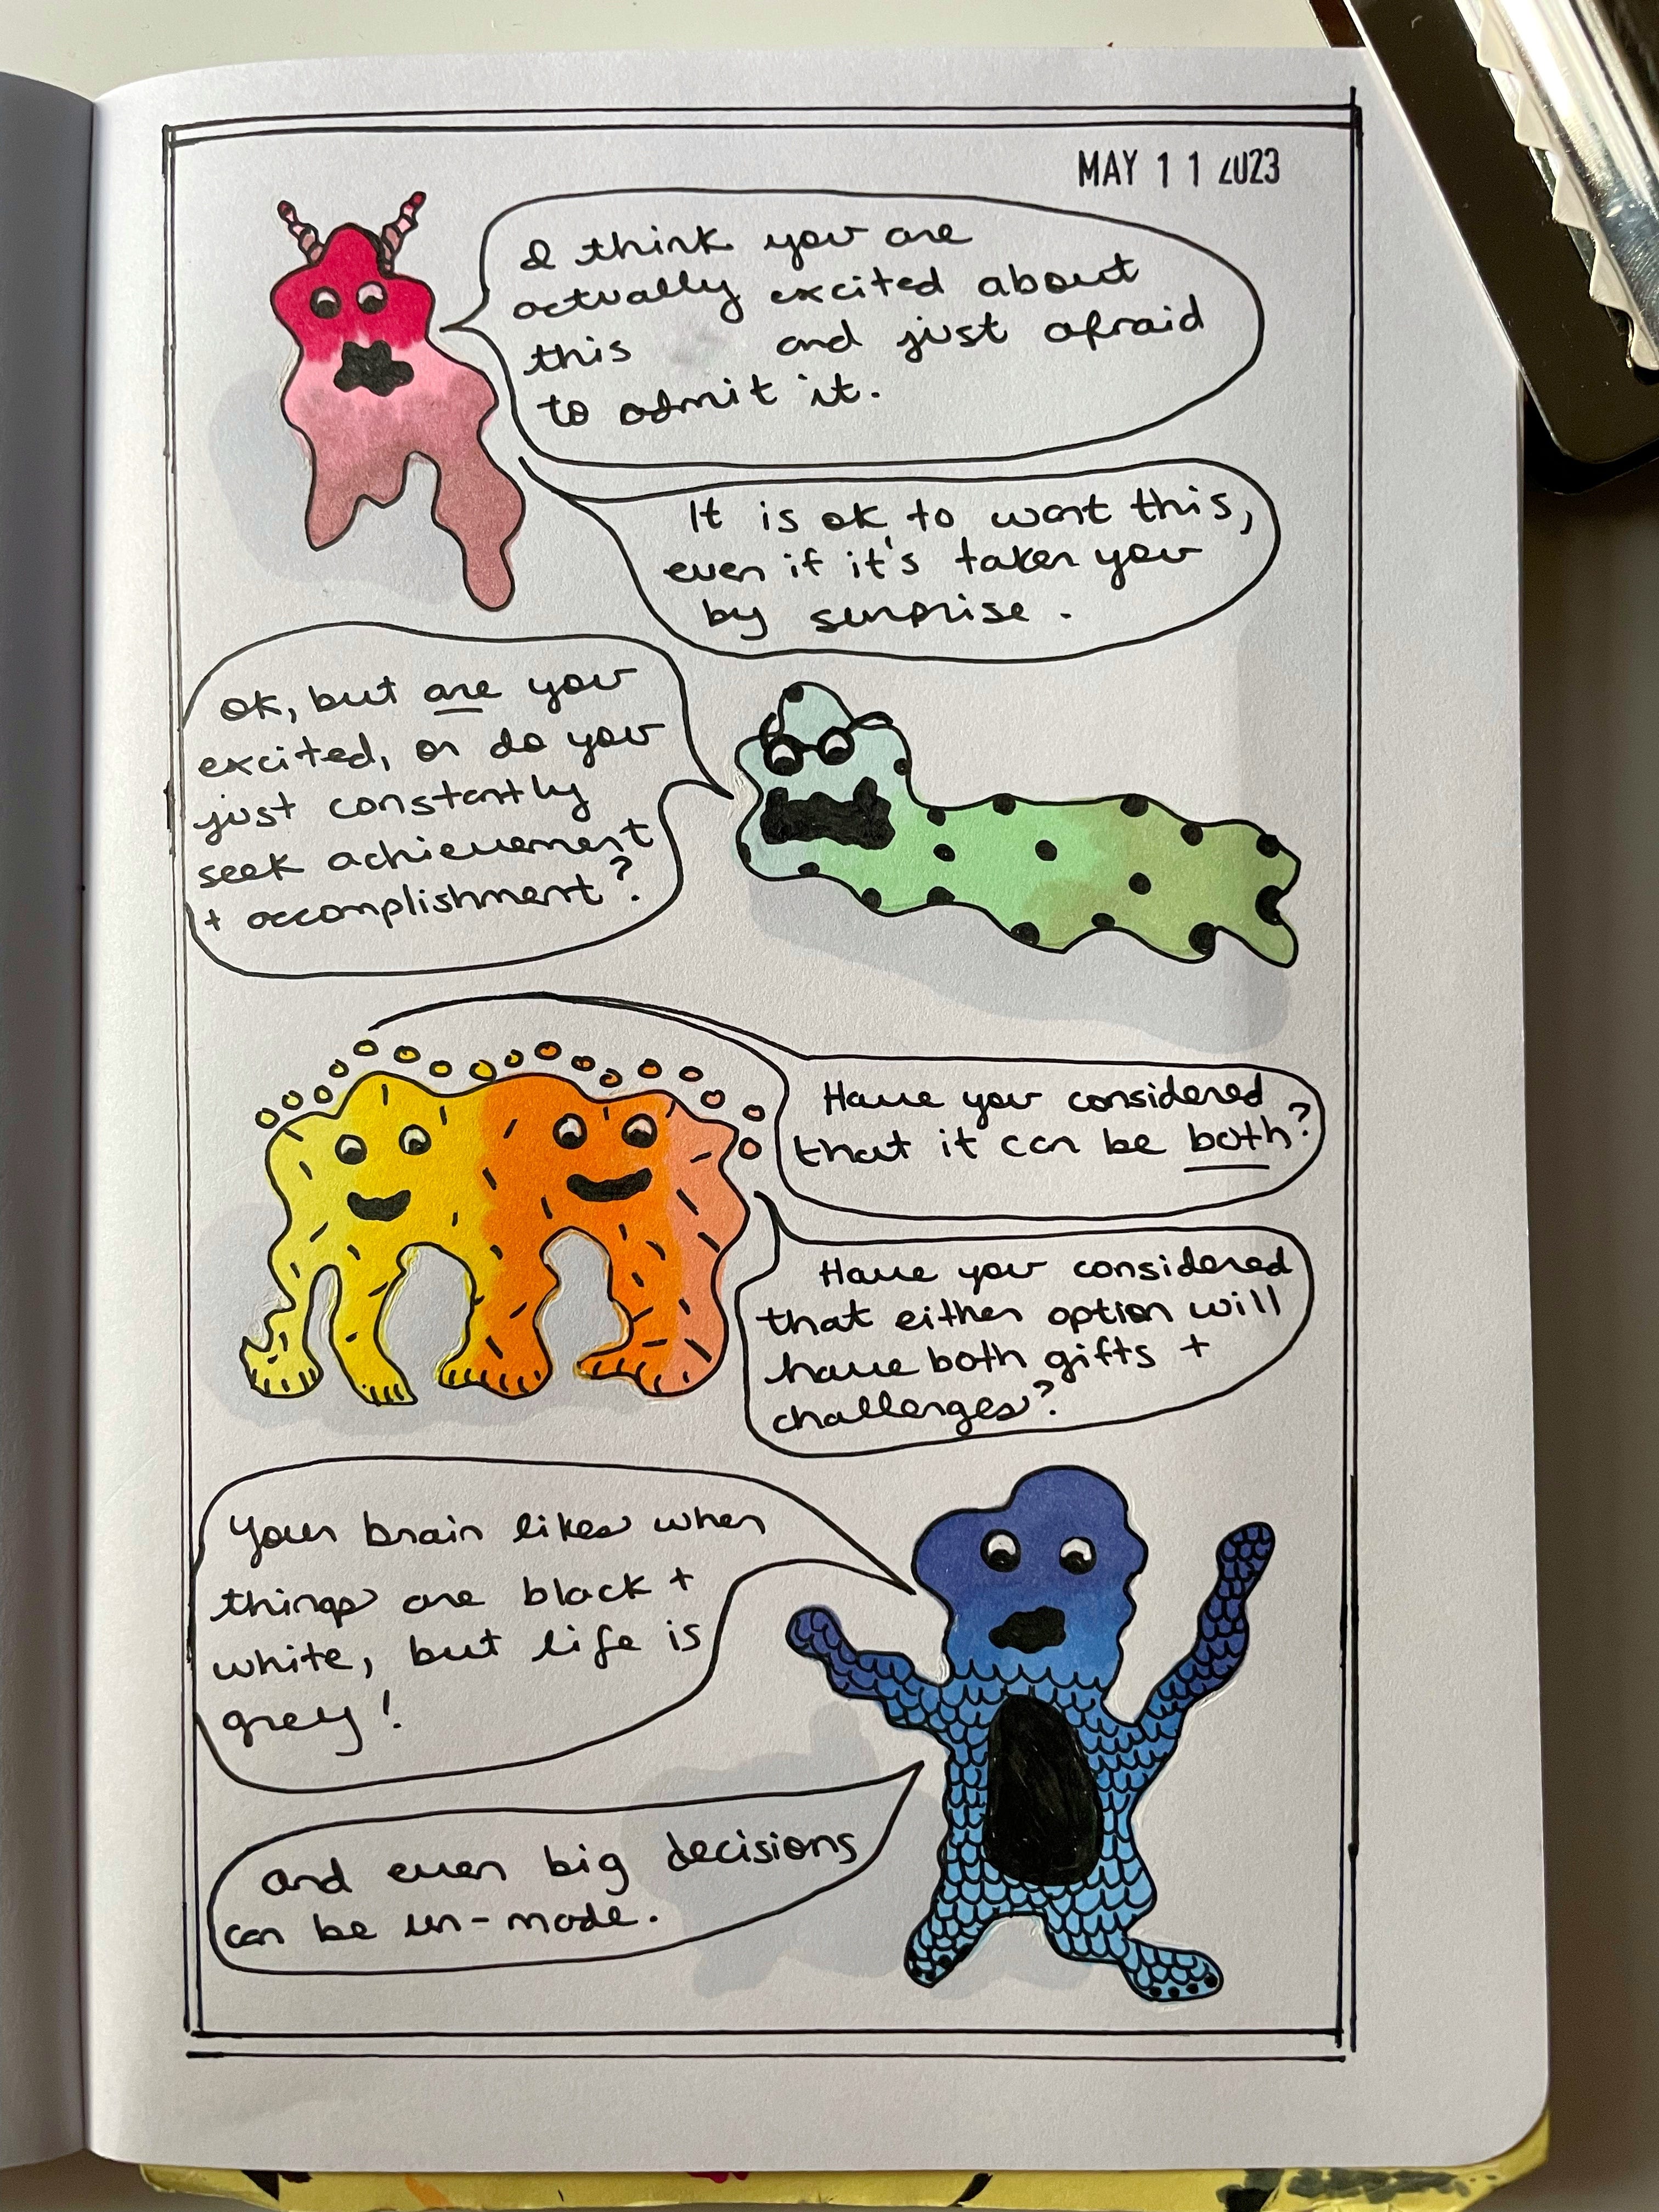 MAY 11 2023
I think you are
actually excited about
this and just afraid
to admit it.
It is ok to want this,
even if it's taken you
by surprise.
ok, but are you
excited, or do you
just constantly
seek achievement
+ accomplishment?
Have you considered
that it can be both?
Have you considered
that either option will
have both gifts +
challenges?
Your brain likes when
things are black +
white, but life is
grey!
And even big decisions
can be un-made.